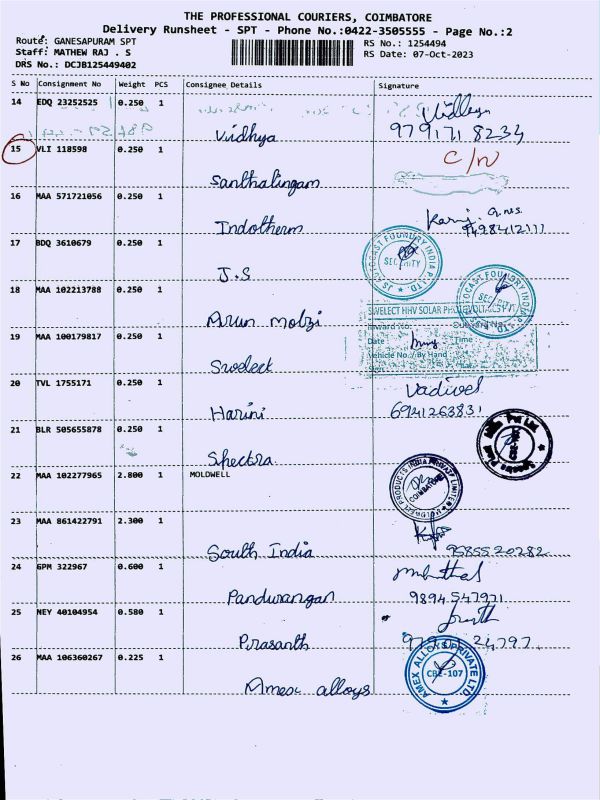 THE PROFESSIONAL COURIERS, COIMBATORE
Delivery Runsheet - SPT - Phone No.:0422-3505555 - Page No.:2
Route: GANESAPURAM SPT
Staff: MATHEW RAJ . S
DRS No.: DCJB125449402
RS No.: 1254494
RS Date: 07-Oct-2023
S No Consignment No Weight PCS Consignee Details Signature
14 EDQ 23252525 0.250 1 Vidhya
979171 8234
15 VLI 118598 0.250 1 Santhalingam C/N
16 MAA 571721056 0.250 1 Indotherm
9498412111
17 BDQ 3610679 0.250 1 J.S
SECURITY
18 MAA 102213788 0.250 1 Arun
SECURITY
19 MAA 100179817 0.250 1 Swelect
SWELECT HHV SOLAR
Inward No:
Date Time:
Vehicle No. / By Hand
20 TVL 1755171 0.250 1 Harini Vadivel
6941263831
21 BLR 505655878 0.250 1 Spectra
22 MAA 102277965 2.800 1 MOLDWELL
MOLDWELL PRODUCTS INDIA PRIVATE LIMITED
COIMBATORE
23 MAA 861422791 2.300 1 South India
9585520282
24 GPM 322967 0.600 1 Pandurangan
9894547971
25 NEY 40104954 0.580 1 Prasanth
26 MAA 106360267 0.225 1 Amex alloys
AMEX ALLOYS PRIVATE LTD.
CBE-107